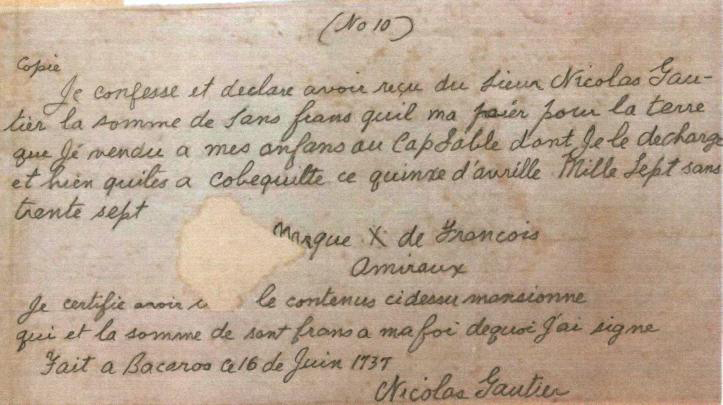 (No 10)
Copie
Je confesse et declare avoir reçu du Sieur Nicolas Gau-
tier la somme de Sans frans quil ma paier pour la terre
que Jé vendu a mes anfans au Cap Sable dont Je le decharge
et hien quiles a cobequilte ce quinxe d'avrille Mille Sept sans
trente sept
Marque X de Francois
Amiraux
Je certifie avoir le contenus cidessu mansionne
qui et la somme de sant frans a ma foi dequoi J'ai signe
Fait a Bacaros ce 16 de Juin 1737
Nicolas Gautier